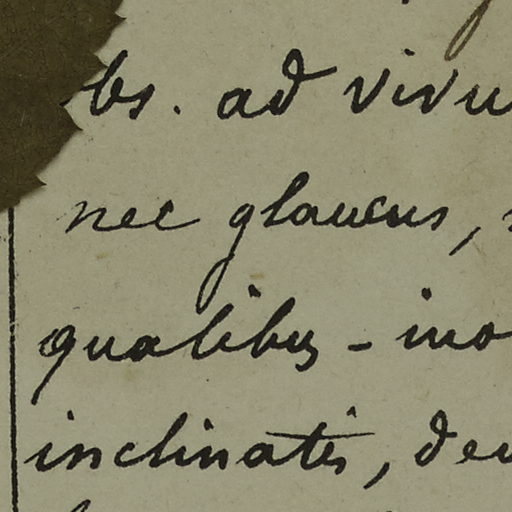 bs. ad vivu
nec glaucus,
qualibus - ino
inclinatis, den